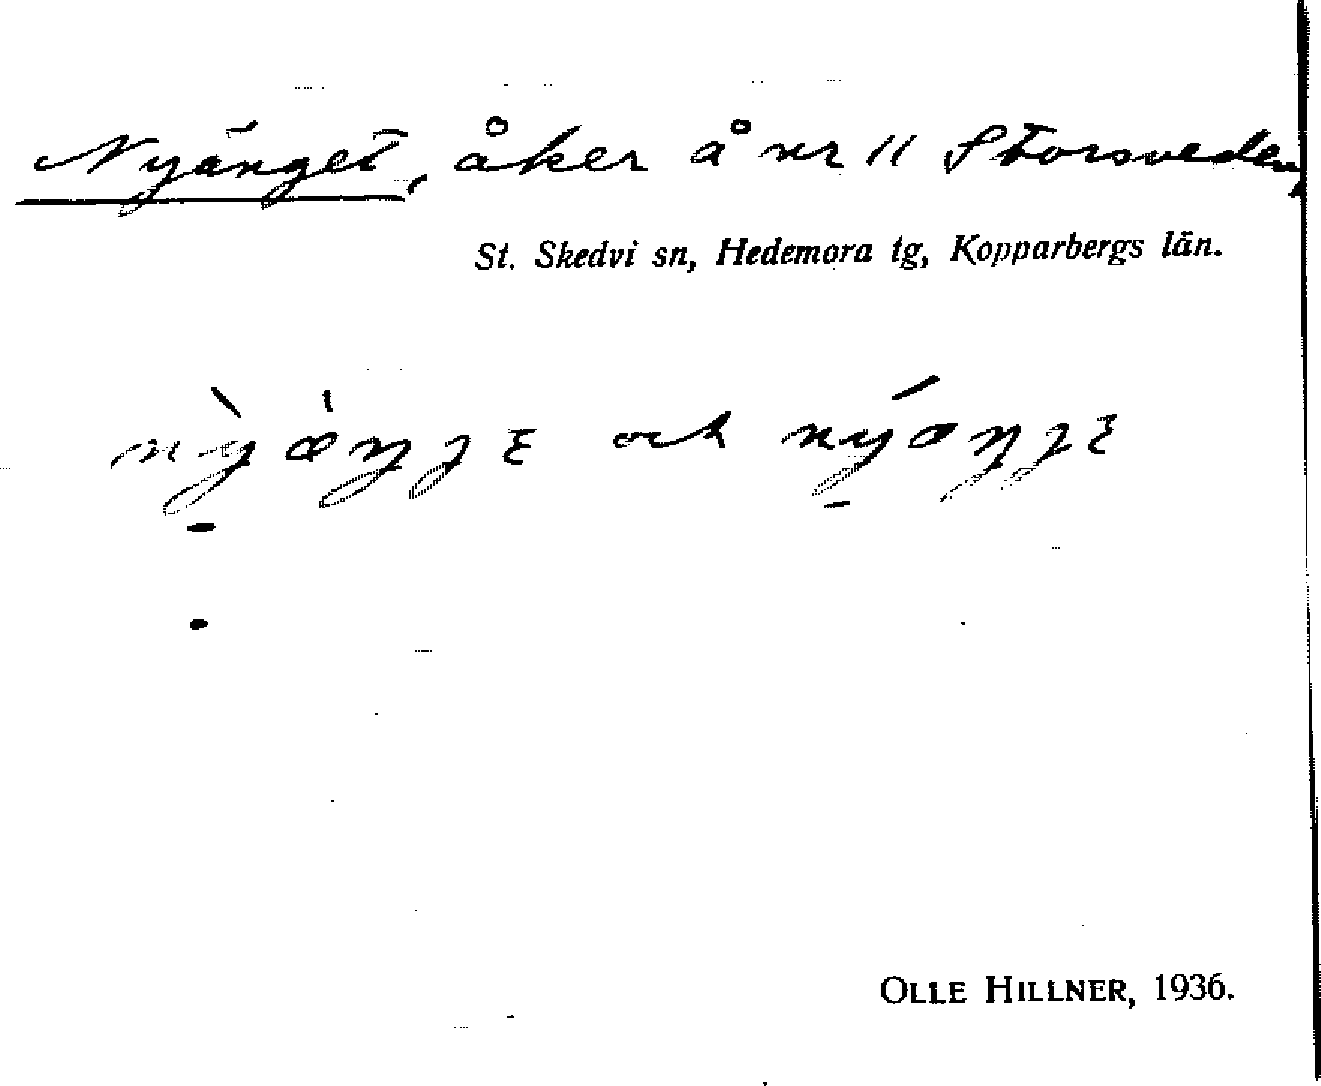 Nyänget, åker å nr 11 Storsveden,
St. Skedvi sn, Hedemora tg, Kopparbergs län.
och
OLLE HILLNER, 1936.